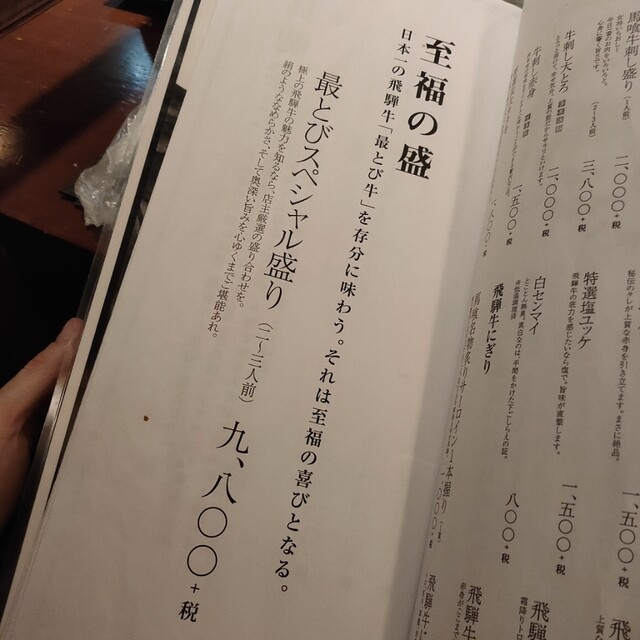 至福の盛
日本一の飛騨牛「最とび牛」を存分に味わう。それは至福の喜びとなる。
最とびスペシャル盛り（二〜三人前） 九、八〇〇+税
極上の飛騨牛の魅力を知るなら、店主厳選の盛り合わせを。
絹のようななめらかさ、そして奥深い旨みを心ゆくまでご堪能あれ。
馬喰牛刺し盛り
三、八〇〇+税
牛刺し大とろ
二、〇〇〇+税
牛刺し赤身
一、五〇〇+税
一、五〇〇+税
秘伝のタレが上質な赤身を引き立てます。まさに絶品。
特選塩ユッケ
一、五〇〇+税
飛騨牛の底力を感じたいなら塩で。旨味が直撃します。
白センマイ
八〇〇+税
飛騨牛にぎり
飛騨牛
飛騨
飛騨牛